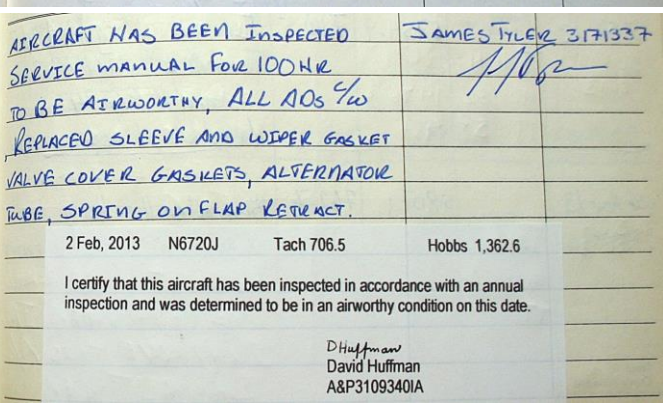 AIRCRAFT HAS BEEN INSPECTED JAMES TYLER 3171337
SERVICE MANUAL FOR 100HR
TO BE AIRWORTHY, ALL ADs c/w
REPLACED SLEEVE AND WIPER GASKET
VALVE COVER GASKETS, ALTERNATOR
TUBE, SPRING ON FLAP RETRACT.
2 Feb, 2013 N6720J Tach 706.5 Hobbs 1,362.6
I certify that this aircraft has been inspected in accordance with an annual
inspection and was determined to be in an airworthy condition on this date.
DHuffman
David Huffman
A&P3109340IA